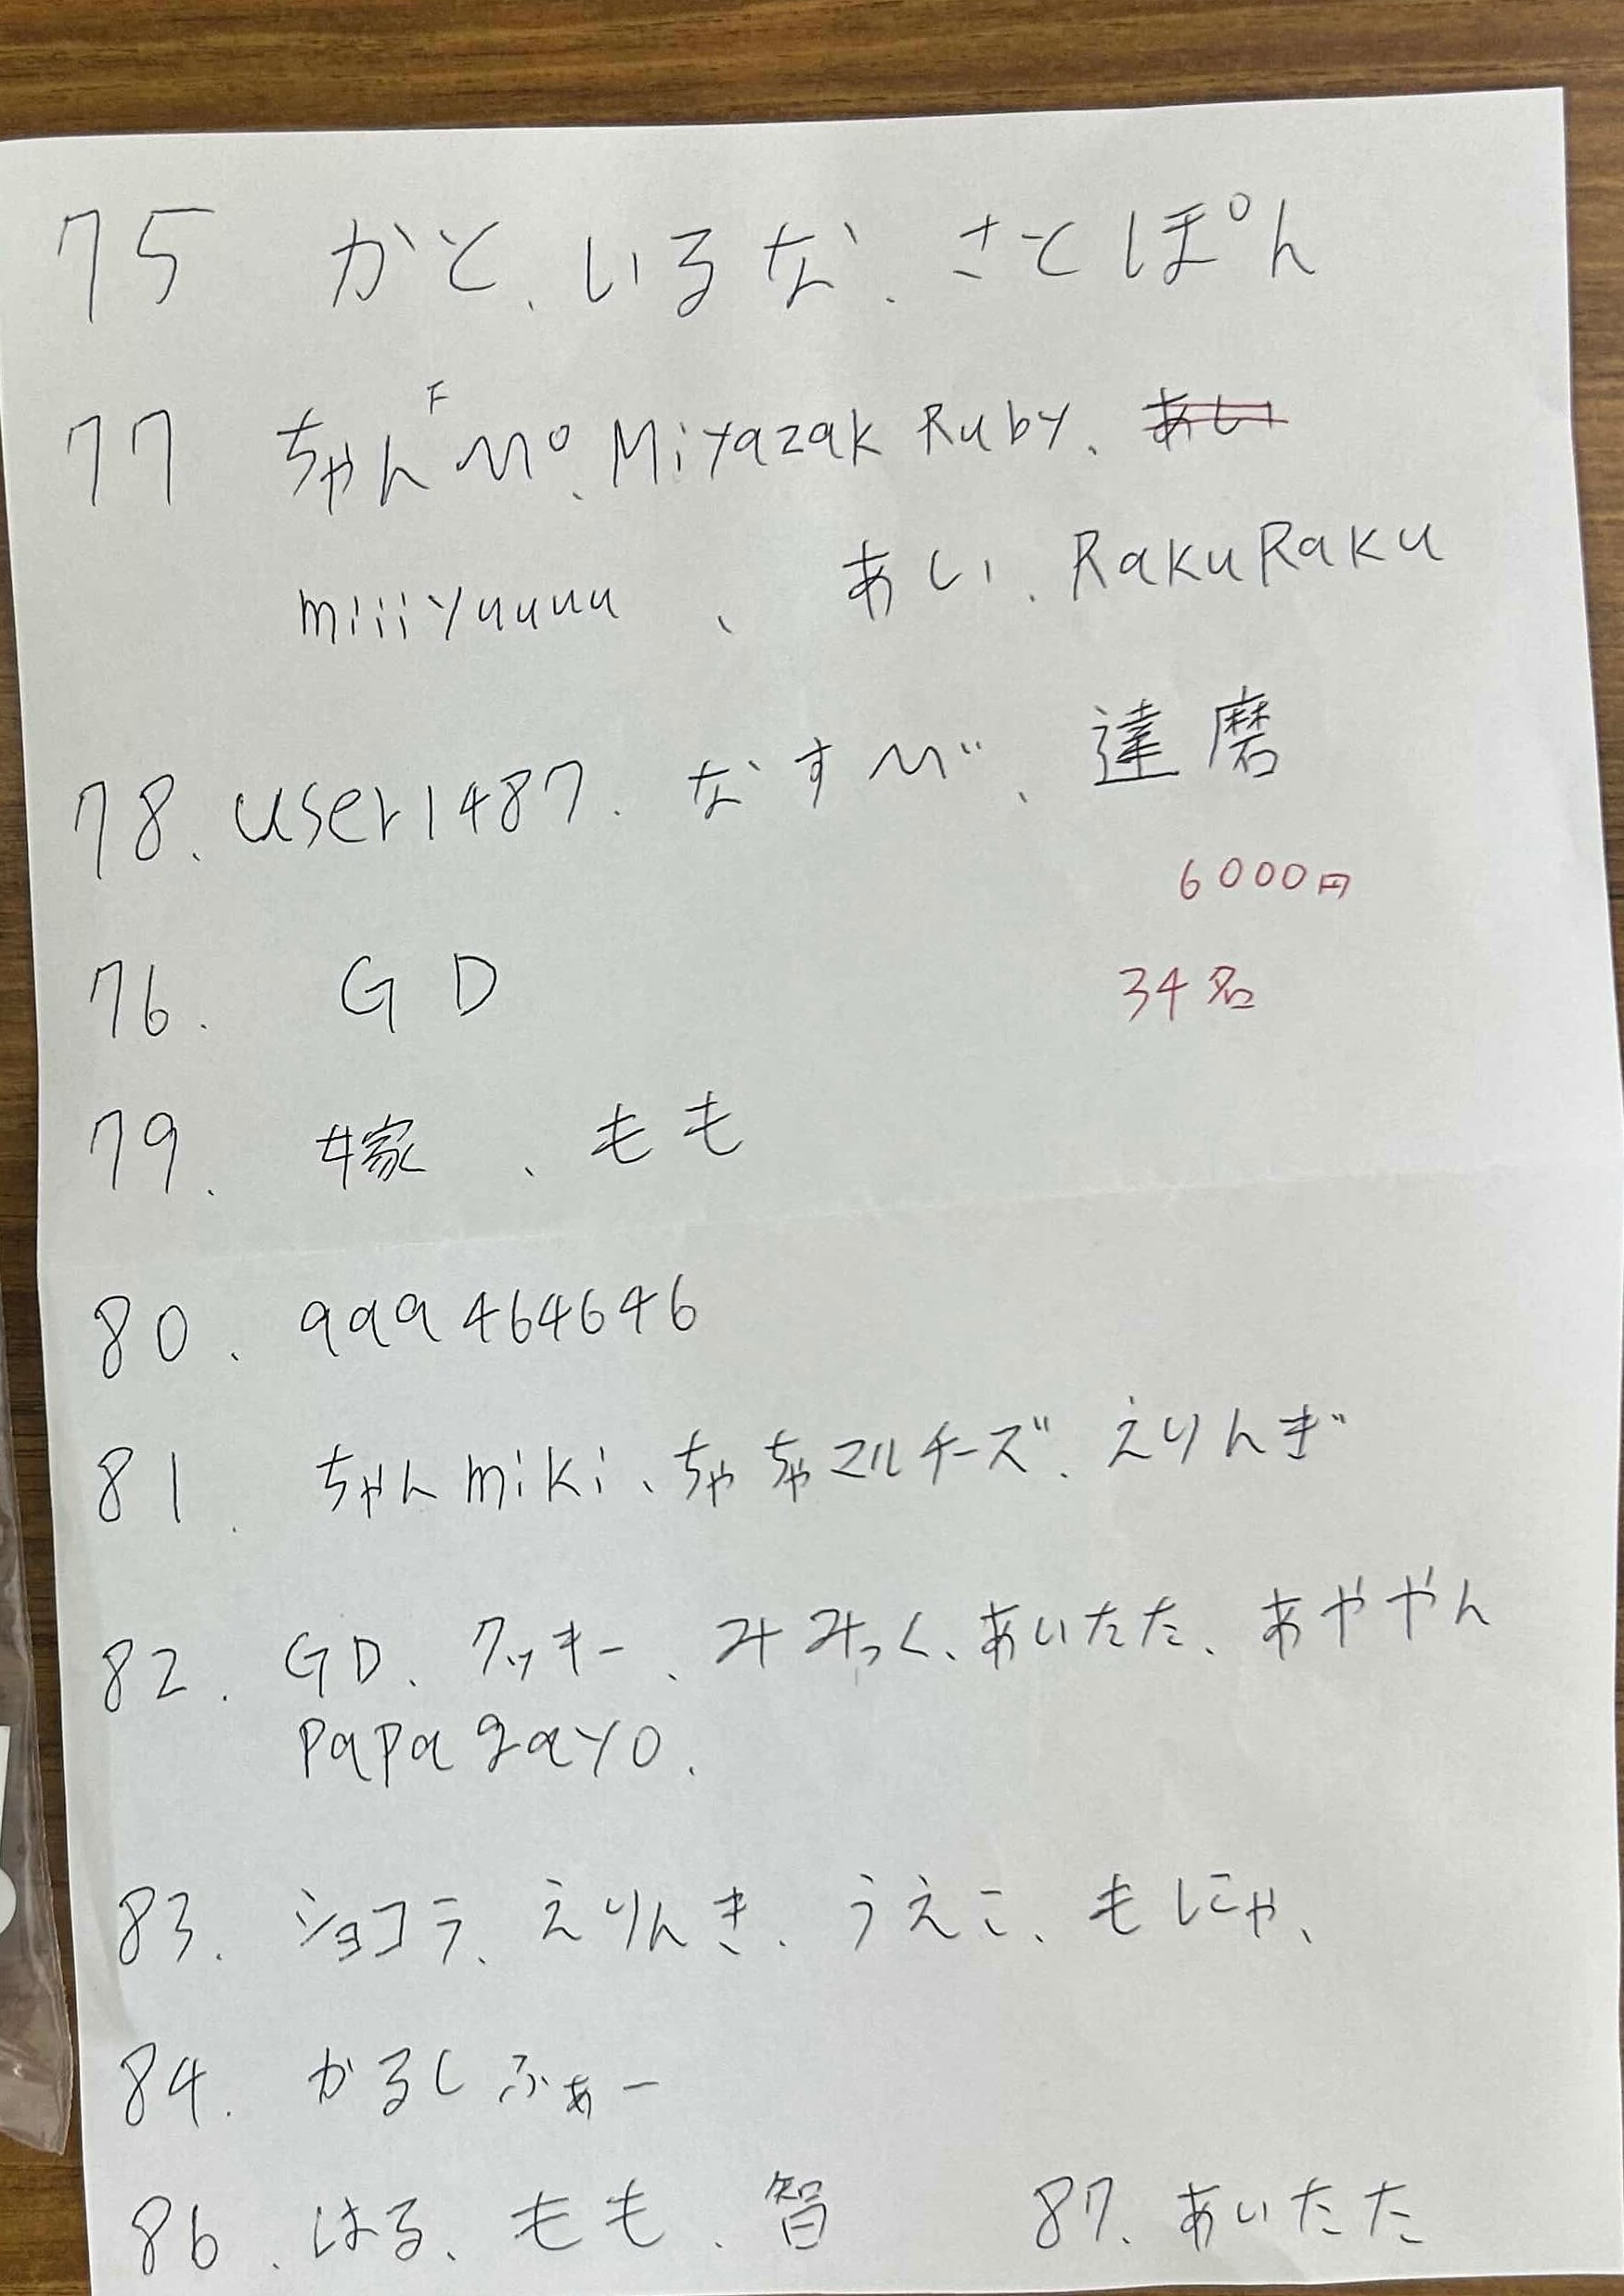 75 かと、いるな、さとぽん
F
77 ちゃんMo、Miyazak Ruby、
miiiyuuuu、あい、RakuRaku
78、user1487、なすび、達磨
6000円
76. GD
34名
79. 嫁、もも
80、qqq464646
81. ちゃんmiki、ちゃちゃマルチーズ、えりんぎ
82. GD、クッキー、みみっく、あいたた、あややん
papagayo.
83. ショコラ、えりんき、うえこ、もにゃ、
84. かるしふぁー
86、はる、もも、智 87、あいたた